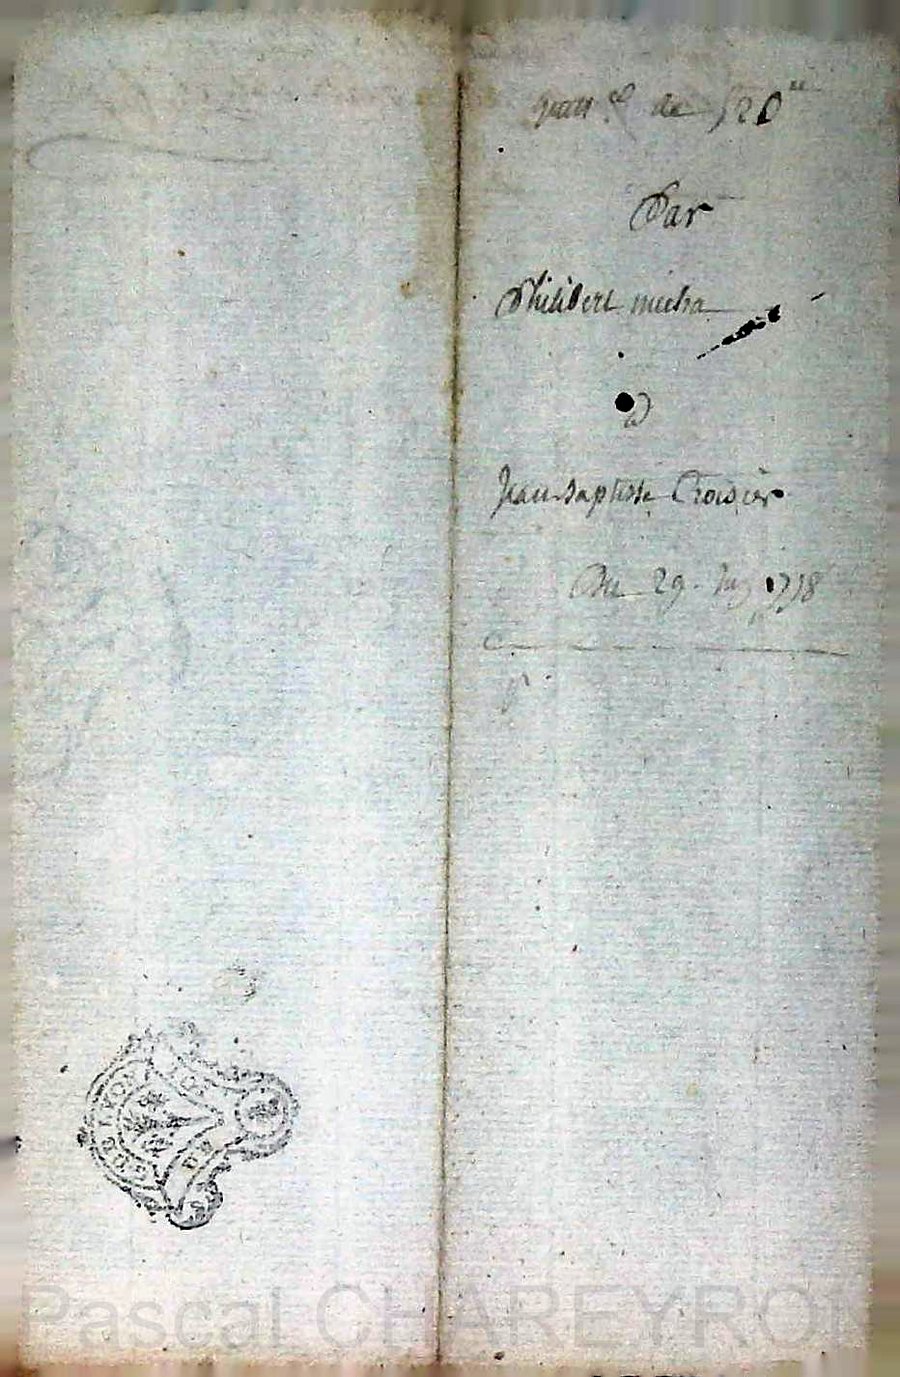 quitt.ce de 120ᵗᵗ
Par
Philibert micha
a
Jean Baptiste Crosier
Du 29. 1778
Pascal CHAREYRON